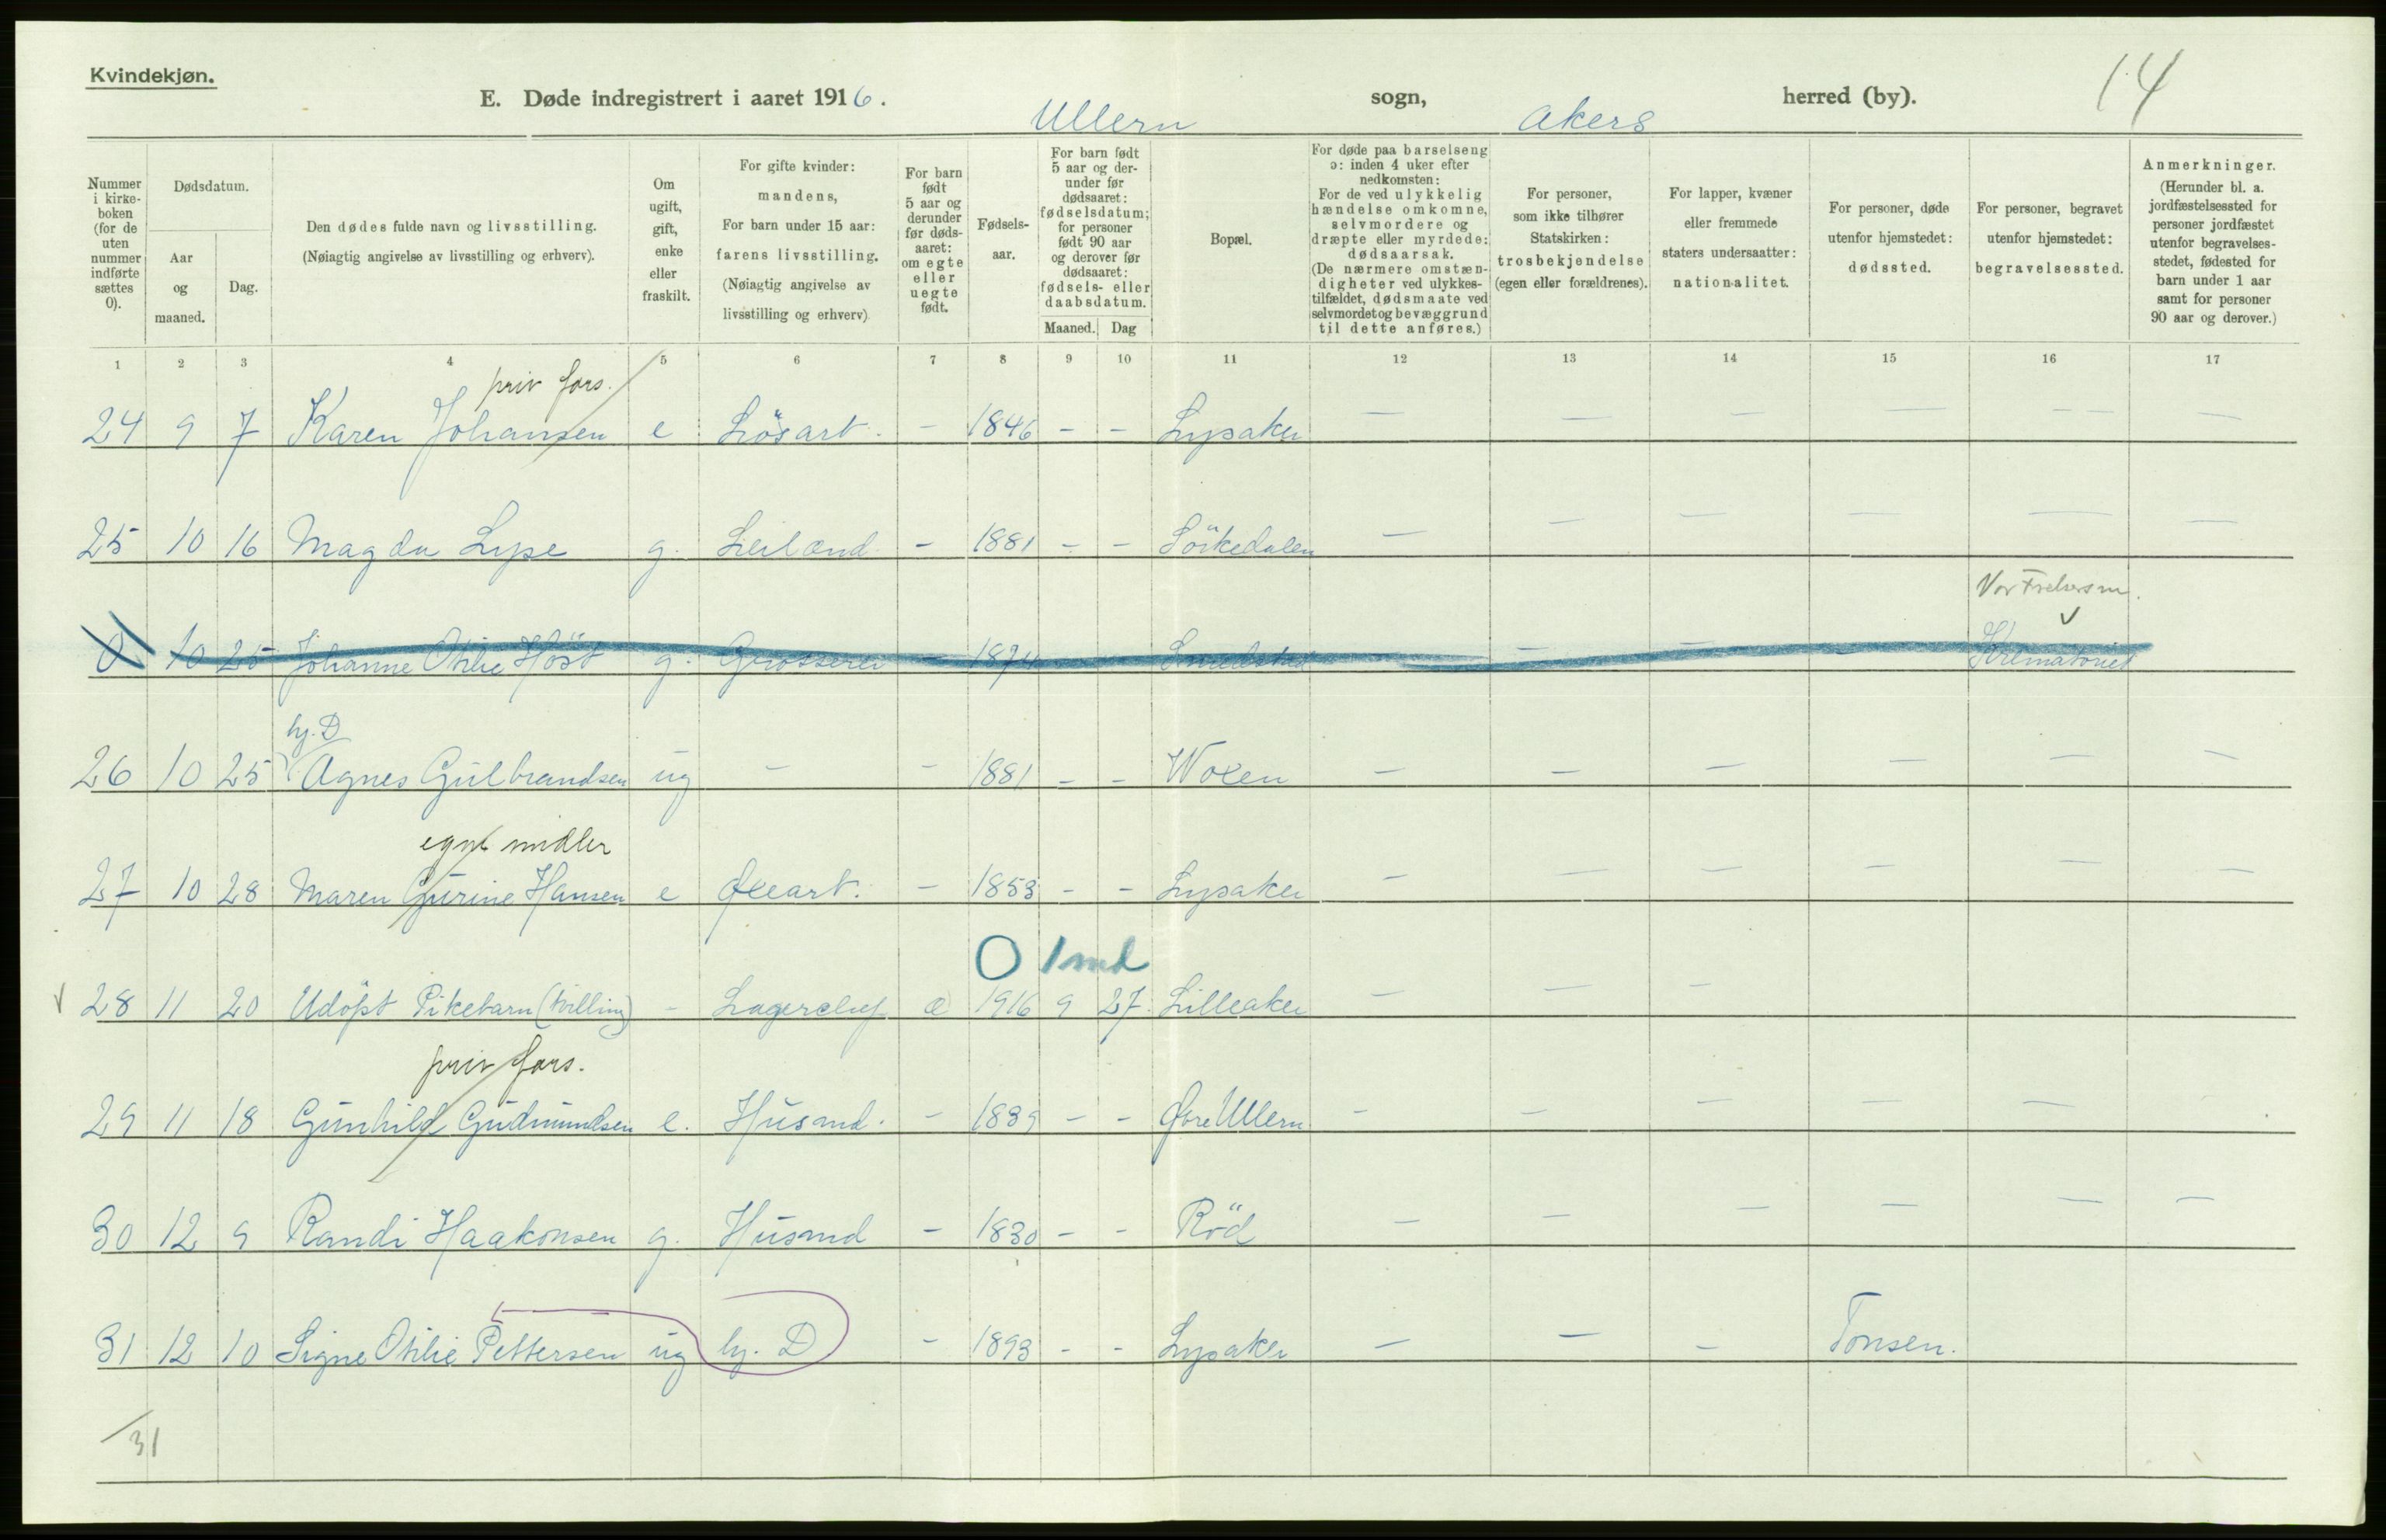 Kvindekjøn.
E. Døde indregistrert i aaret 1916. Ullern sogn, Akers herred (by). 14
Nummer i kirkeboken (for de uten nummer indførte sættes 0).
Dødsdatum.
Aar og maaned.
Dag.
Den dødes fulde navn og livsstilling.
(Nøiagtig angivelse av livsstilling og erhverv).
Om ugift, gift, enke eller fraskilt.
For gifte kvinder:
mandens,
For barn under 15 aar:
farens livsstilling.
(Nøiagtig angivelse av
livsstilling og erhverv)
For barn født 5 aar og derunder før dødsaaret: om egte eller uegte født.
Fødselsaar.
For barn født 5 aar og derunder før dødsaaret: fødselsdatum; for personer født 90 aar og derover før dødsaaret: fødsels- eller daabsdatum.
Maaned. Dag
Bopæl.
For døde paa barselseng ɔ: inden 4 uker efter nedkomsten:
For de ved ulykkelig hændelse omkomne, selvmordere og dræpte eller myrdede: dødsaarsak.
(De nærmere omstændigheter ved ulykkestilfældet, dødsmaate ved selvmordet og bevæggrund til dette anføres.)
For personer, som ikke tilhører Statskirken: trosbekjendelse (egen eller forældrenes).
For lapper, kvæner eller fremmede staters undersaatter: nationalitet.
For personer, døde utenfor hjemstedet: dødssted.
For personer, begravet utenfor hjemstedet: begravelsessted.
Anmerkninger.
(Herunder bl. a. jordfæstelsessted for personer jordfæstet utenfor begravelsesstedet, fødested for barn under 1 aar samt for personer 90 aar og derover.)
1 2 3 4 5 6 7 8 9 10 11 12 13 14 15 16 17
priv fors.
24 9 7 Karen Johansen e Lösart. - 1846 - - Lysaker - - - - - -
25 10 16 Magda Lyse g. Leilænd. - 1881 - - Sörkedalen - - - - - -
Vor Frelsers m.
0 10 25 Johanne Otilie Höst g. Grosserer - 1874 Smedstad - - - - Krematoriet
hj. D
26 10 25 Agnes Gulbrandsen ug - - 1881 - - Woxen - - - - - -
egne midler
27 10 28 Maren Gurine Hansen e Øxeart. - 1853 - - Lysaker - - - - - -
0 1 md
28 11 20 Udöpt Pikebarn (tvilling) - Lagerchef æ 1916 9 27 Lilleaker - - -
priv fors.
29 11 18 Gunhild Gudmundsen e. Husmd. - 1839 - - Øvre Ullern - - - - -
30 12 9 Randi Haakonsen g. Husmd - 1830 - - Röd - - - - - -
31 12 10 Signe Otilie Pettersen ug hj. D - 1893 - - Lysaker - - - Tonsen.
31